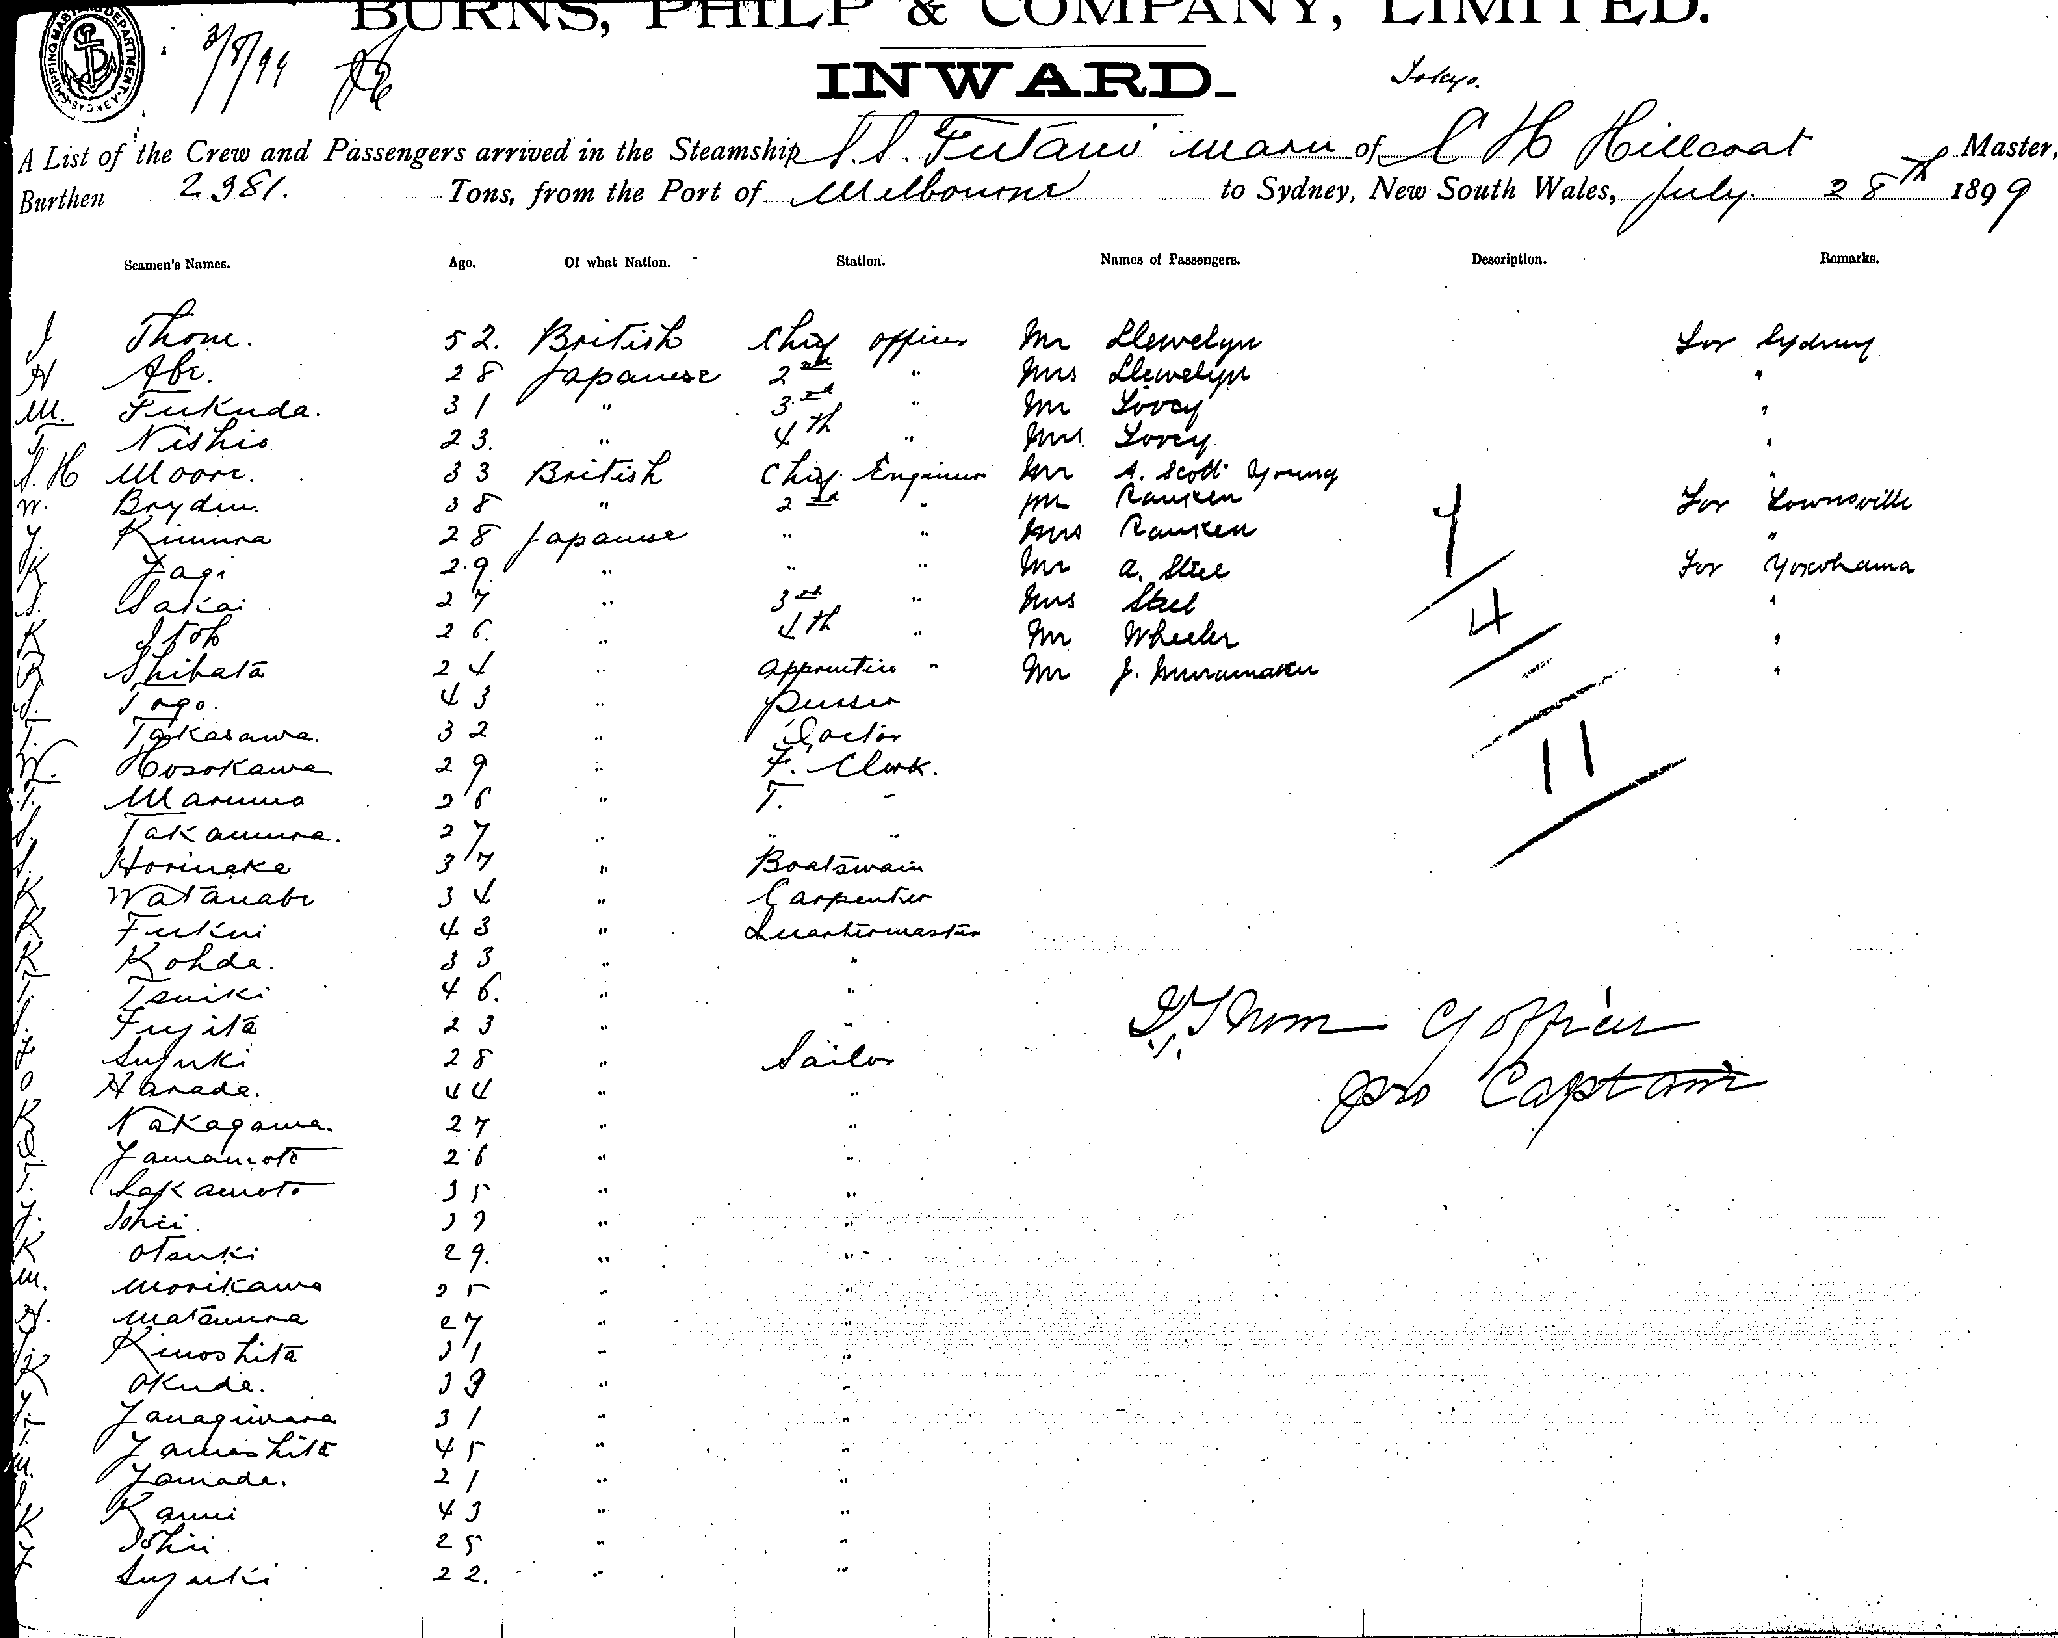 BURNS, PHILP & COMPANY, LIMITED.
3/8/99
INWARD.
Tokyo.
A List of the Crew and Passengers arrived in the Steamship S.S. Futami maru of C H Hillcoat Master,
Burthen 2381. Tons, from the Port of Melbourne to Sydney, New South Wales, July 28th 1899
Seamen's Names. Age. Of what Nation. Station. Names of Passengers. Description. Remarks.
J Thom. 52. British Chief officer Mr Llewelyn For Sydney
H Abe. 28 Japanese 2nd " Mrs Llewelyn "
M. Fukuda. 31 " 3rd " Mr Lovey "
T Nishio 23. " 4th " Mrs Lovey "
S. H Moore. 33 British Chief Engineer Mr A. Scott Young "
W. Bryden. 38 " 2nd " Mr Ranken For Townsville
Y Kimura 28 Japanese " " Mrs Ranken "
K Yagi 29 " " " Mr A. Steel For Yokohama
S. Sakai 27 " 3rd " Mrs Steel "
K Itoh 26. " 4th " Mr Wheeler "
R Shibata 24 " apprentice " Mr J. Muramaker "
7
4
11
S. Togo. 43 " Purser
T. Takasawa. 32 " Doctor
W. Hosokawa 29 " F. Clerk.
T. Marumo 26 " T. "
S. Takamura. 27 " " "
S. Horinaka 37 " Boatswain
K Watanabe 34 " Carpenter
K Fukui 43 " Quartermaster
K Kohda. 33 " "
T Tsuiki 46. " "
S. Fujita 23 " "
Suzuki 28 " Sailor
O Harada. 44 " "
K Nakagawa. 27 " "
Yamamoto 26 " "
T. Sakamoto 35 " "
Y. Ishii "  "
K Otsuki 29. " "
M. Morikawa 25 " "
H. Matamura 27 " "
Kinoshita 31 " "
K Okuda. 39 " "
Yanagiwara 31 " "
T. Yamashita 45 " "
M. Yamada. 21 " "
Kamei 43 " "
K Ishii 25 " "
Suzuki 22. " "
J. Thom C/officer
pro Captain